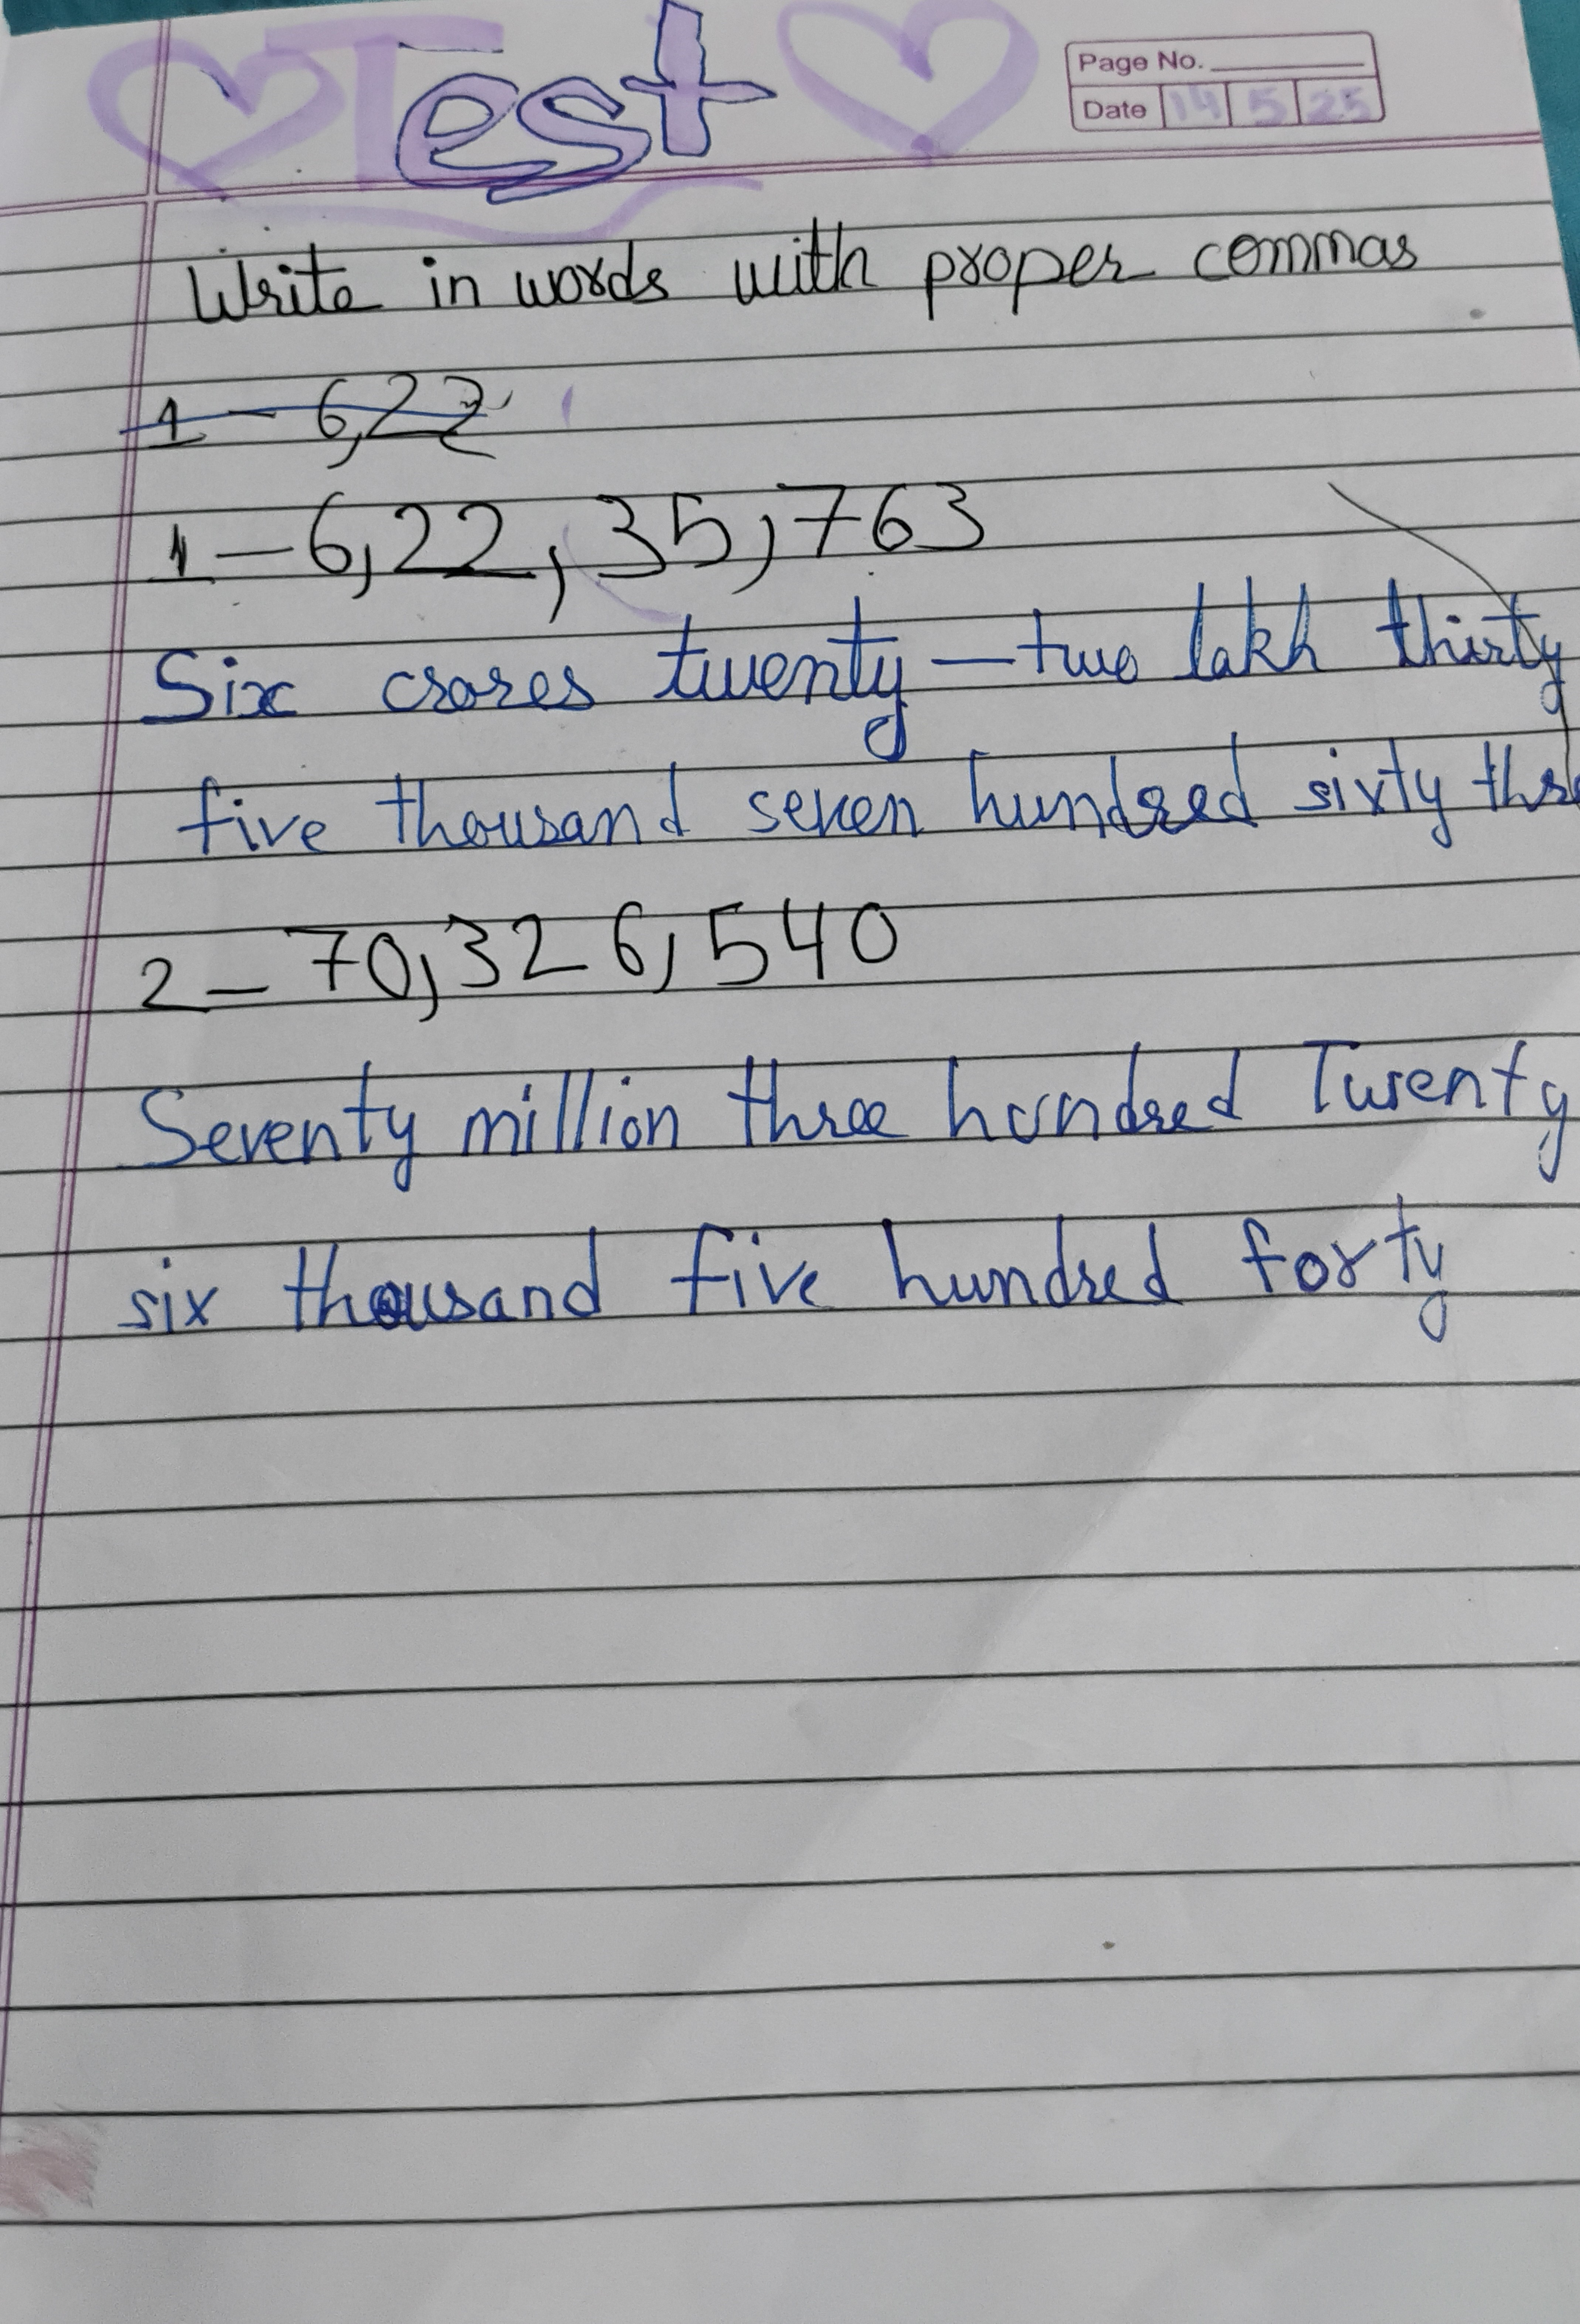 Test
Page No.
Date 14 5 25
Write in words with proper commas
1 - 6,22
1 - 6,22,35,763
Six crores twenty - two lakh thirty
five thousand seven hundred sixty
2 - 70,326,540
Seventy million three hundred Twenty
six thousand five hundred forty